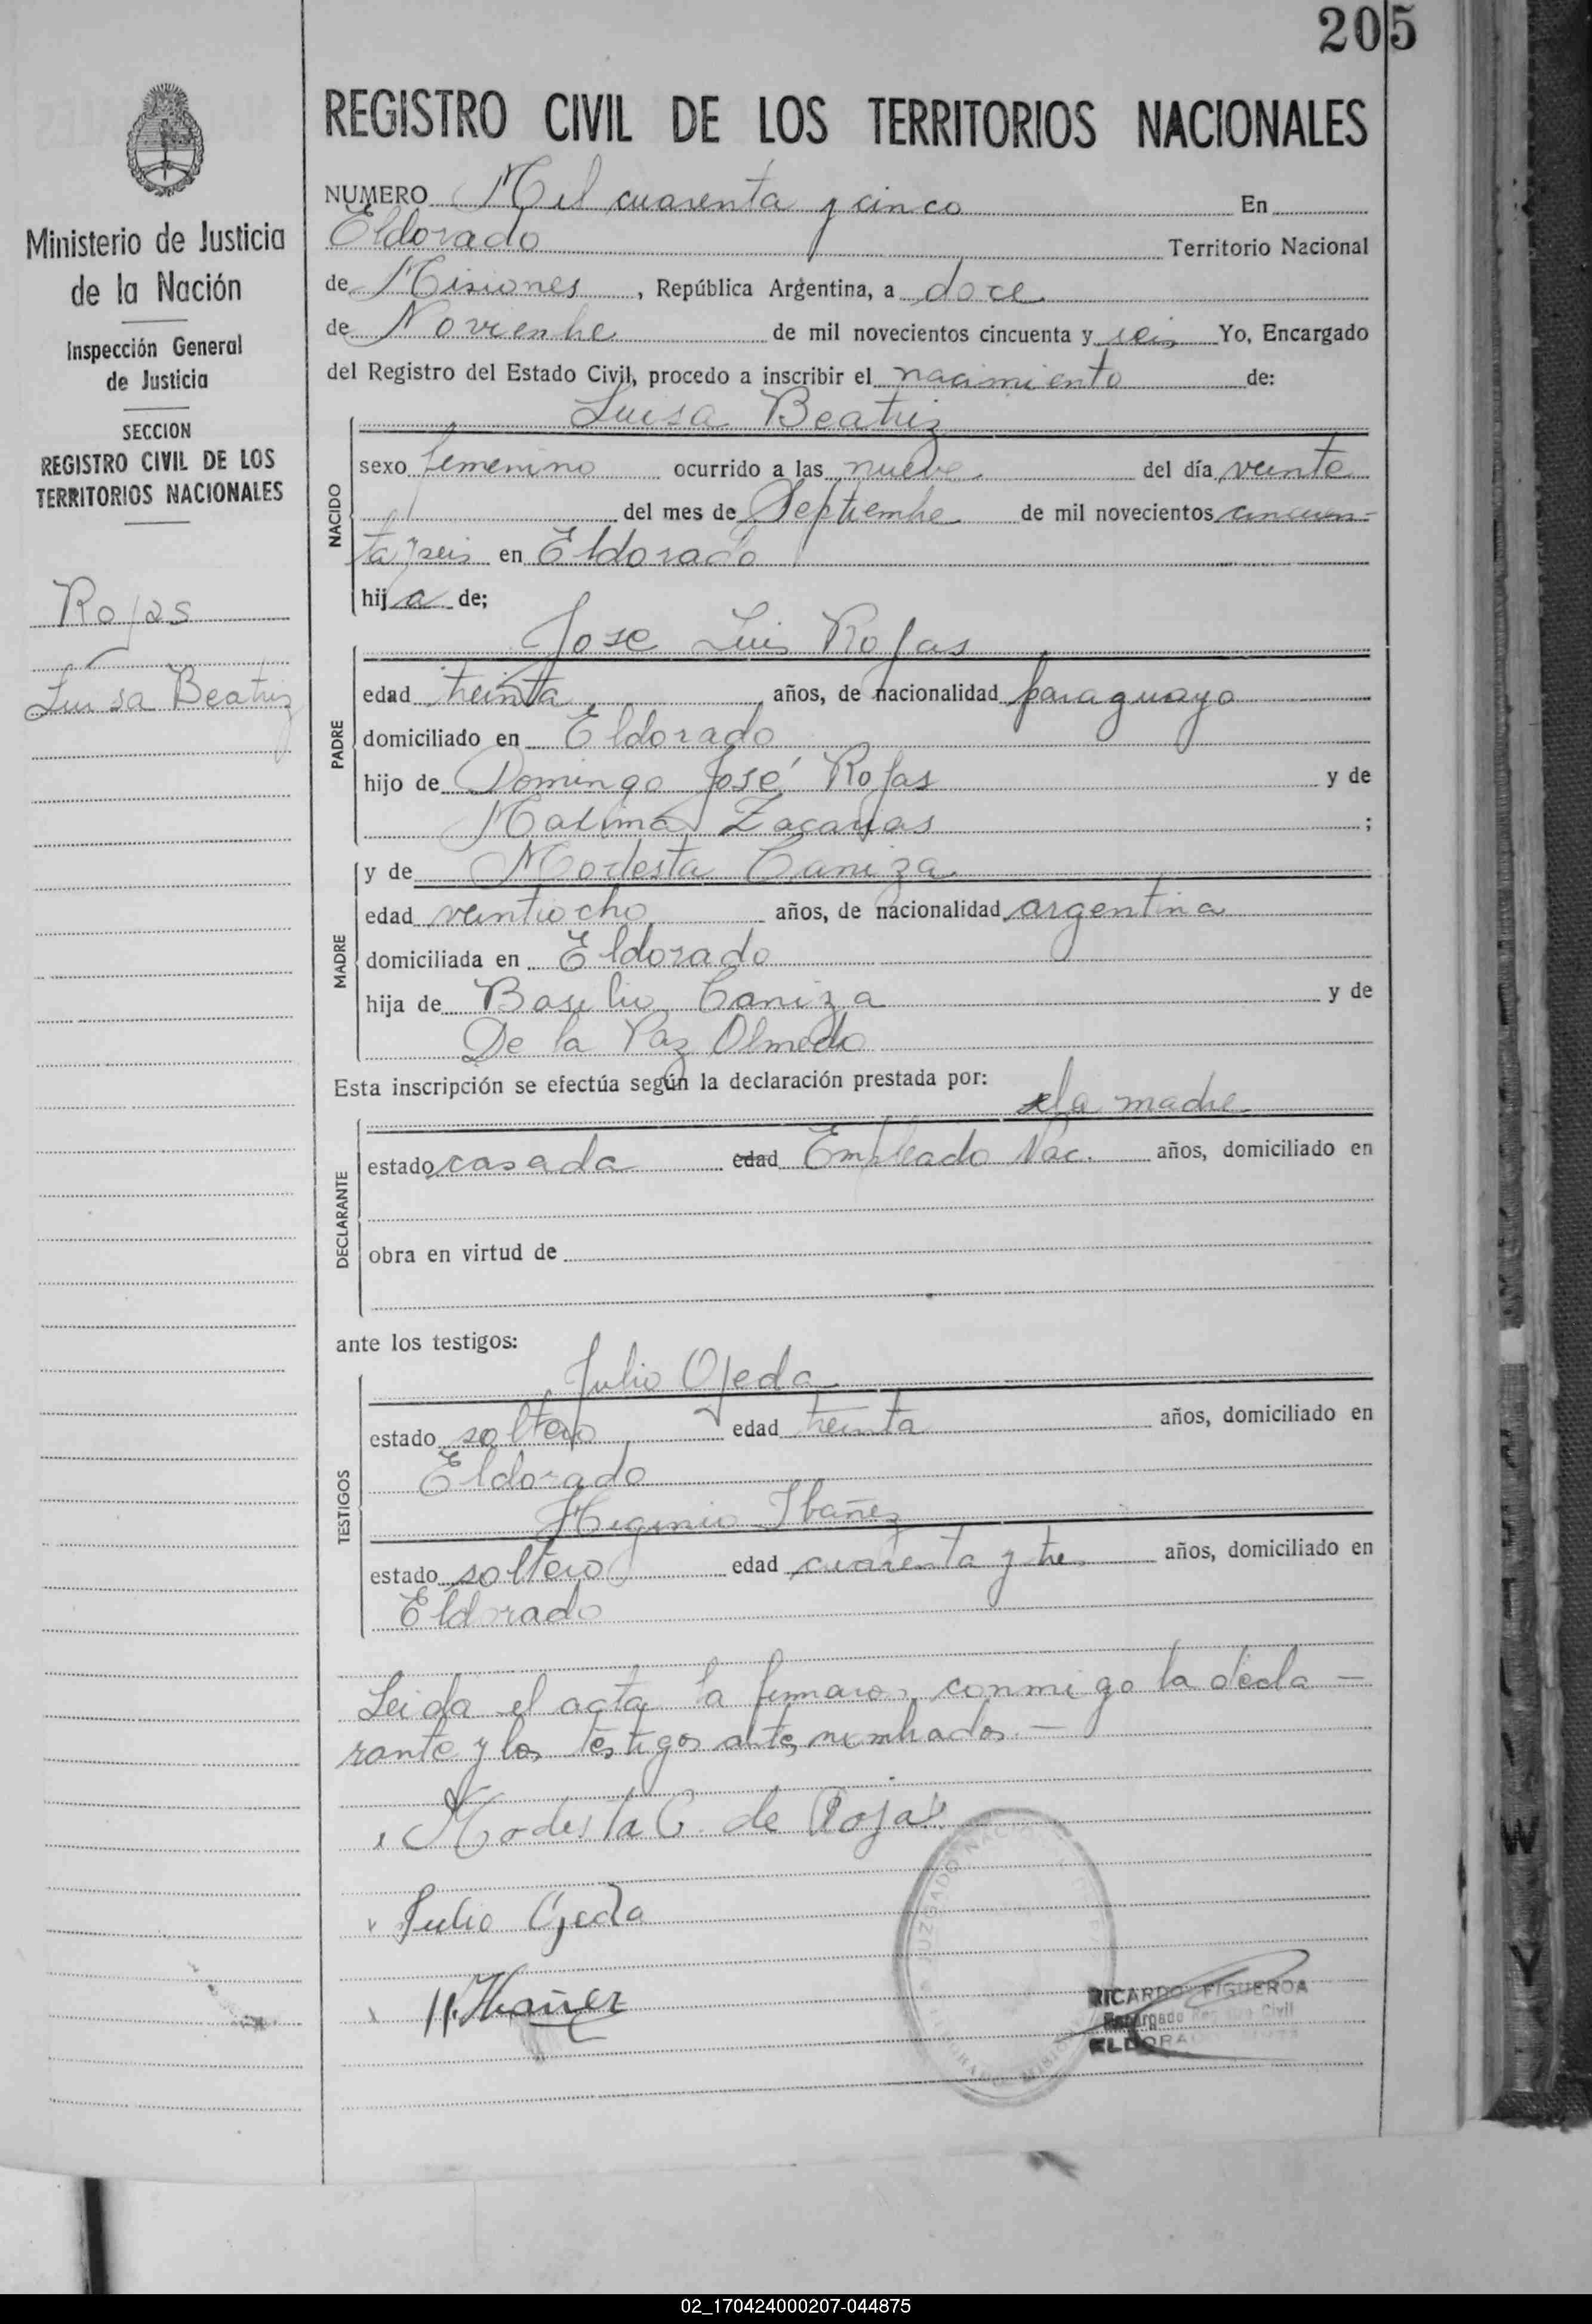 205
Ministerio de Justicia
de la Nación
Inspección General
de Justicia
SECCION
REGISTRO CIVIL DE LOS
TERRITORIOS NACIONALES
Rojas
Luisa Beatriz
REGISTRO CIVIL DE LOS TERRITORIOS NACIONALES
NUMERO Mil cuarenta y cinco En
Eldorado Territorio Nacional
de Misiones, República Argentina, a doce
de Noviembre de mil novecientos cincuenta y seis Yo, Encargado
del Registro del Estado Civil, procedo a inscribir el nacimiento de:
NACIDO
Luisa Beatriz
sexo femenino ocurrido a las nueve del día veinte
del mes de Septiembre de mil novecientos cincuen-
ta y seis en Eldorado
hija de;
PADRE
Jose Luis Rojas
edad treinta años, de nacionalidad paraguaya
domiciliado en Eldorado
hijo de Domingo José Rojas y de
Zacarias ;
MADRE
y de Modesta Caniza
edad veintiocho años, de nacionalidad argentina
domiciliada en Eldorado
hija de Basilio Caniza y de
De la Paz Olmedo
Esta inscripción se efectúa según la declaración prestada por:
DECLARANTE
la madre
estado casada edad Empleado Nac. años, domiciliado en
obra en virtud de
ante los testigos:
TESTIGOS
Julio Ojeda
estado soltero edad treinta años, domiciliado en
Eldorado
Higinio Ibañez
estado soltero edad cuarenta y tres años, domiciliado en
Eldorado
Leida el acta la firmaron conmigo la decla-
rante y los testigos antes nombrados.-
Modesta C. de Rojas
Julio Ojeda
H. Ibañez
JUZGADO NACI
RICARDO FIGUEROA
Encargado Registro Civil
ELDORADO
02_170424000207-044875